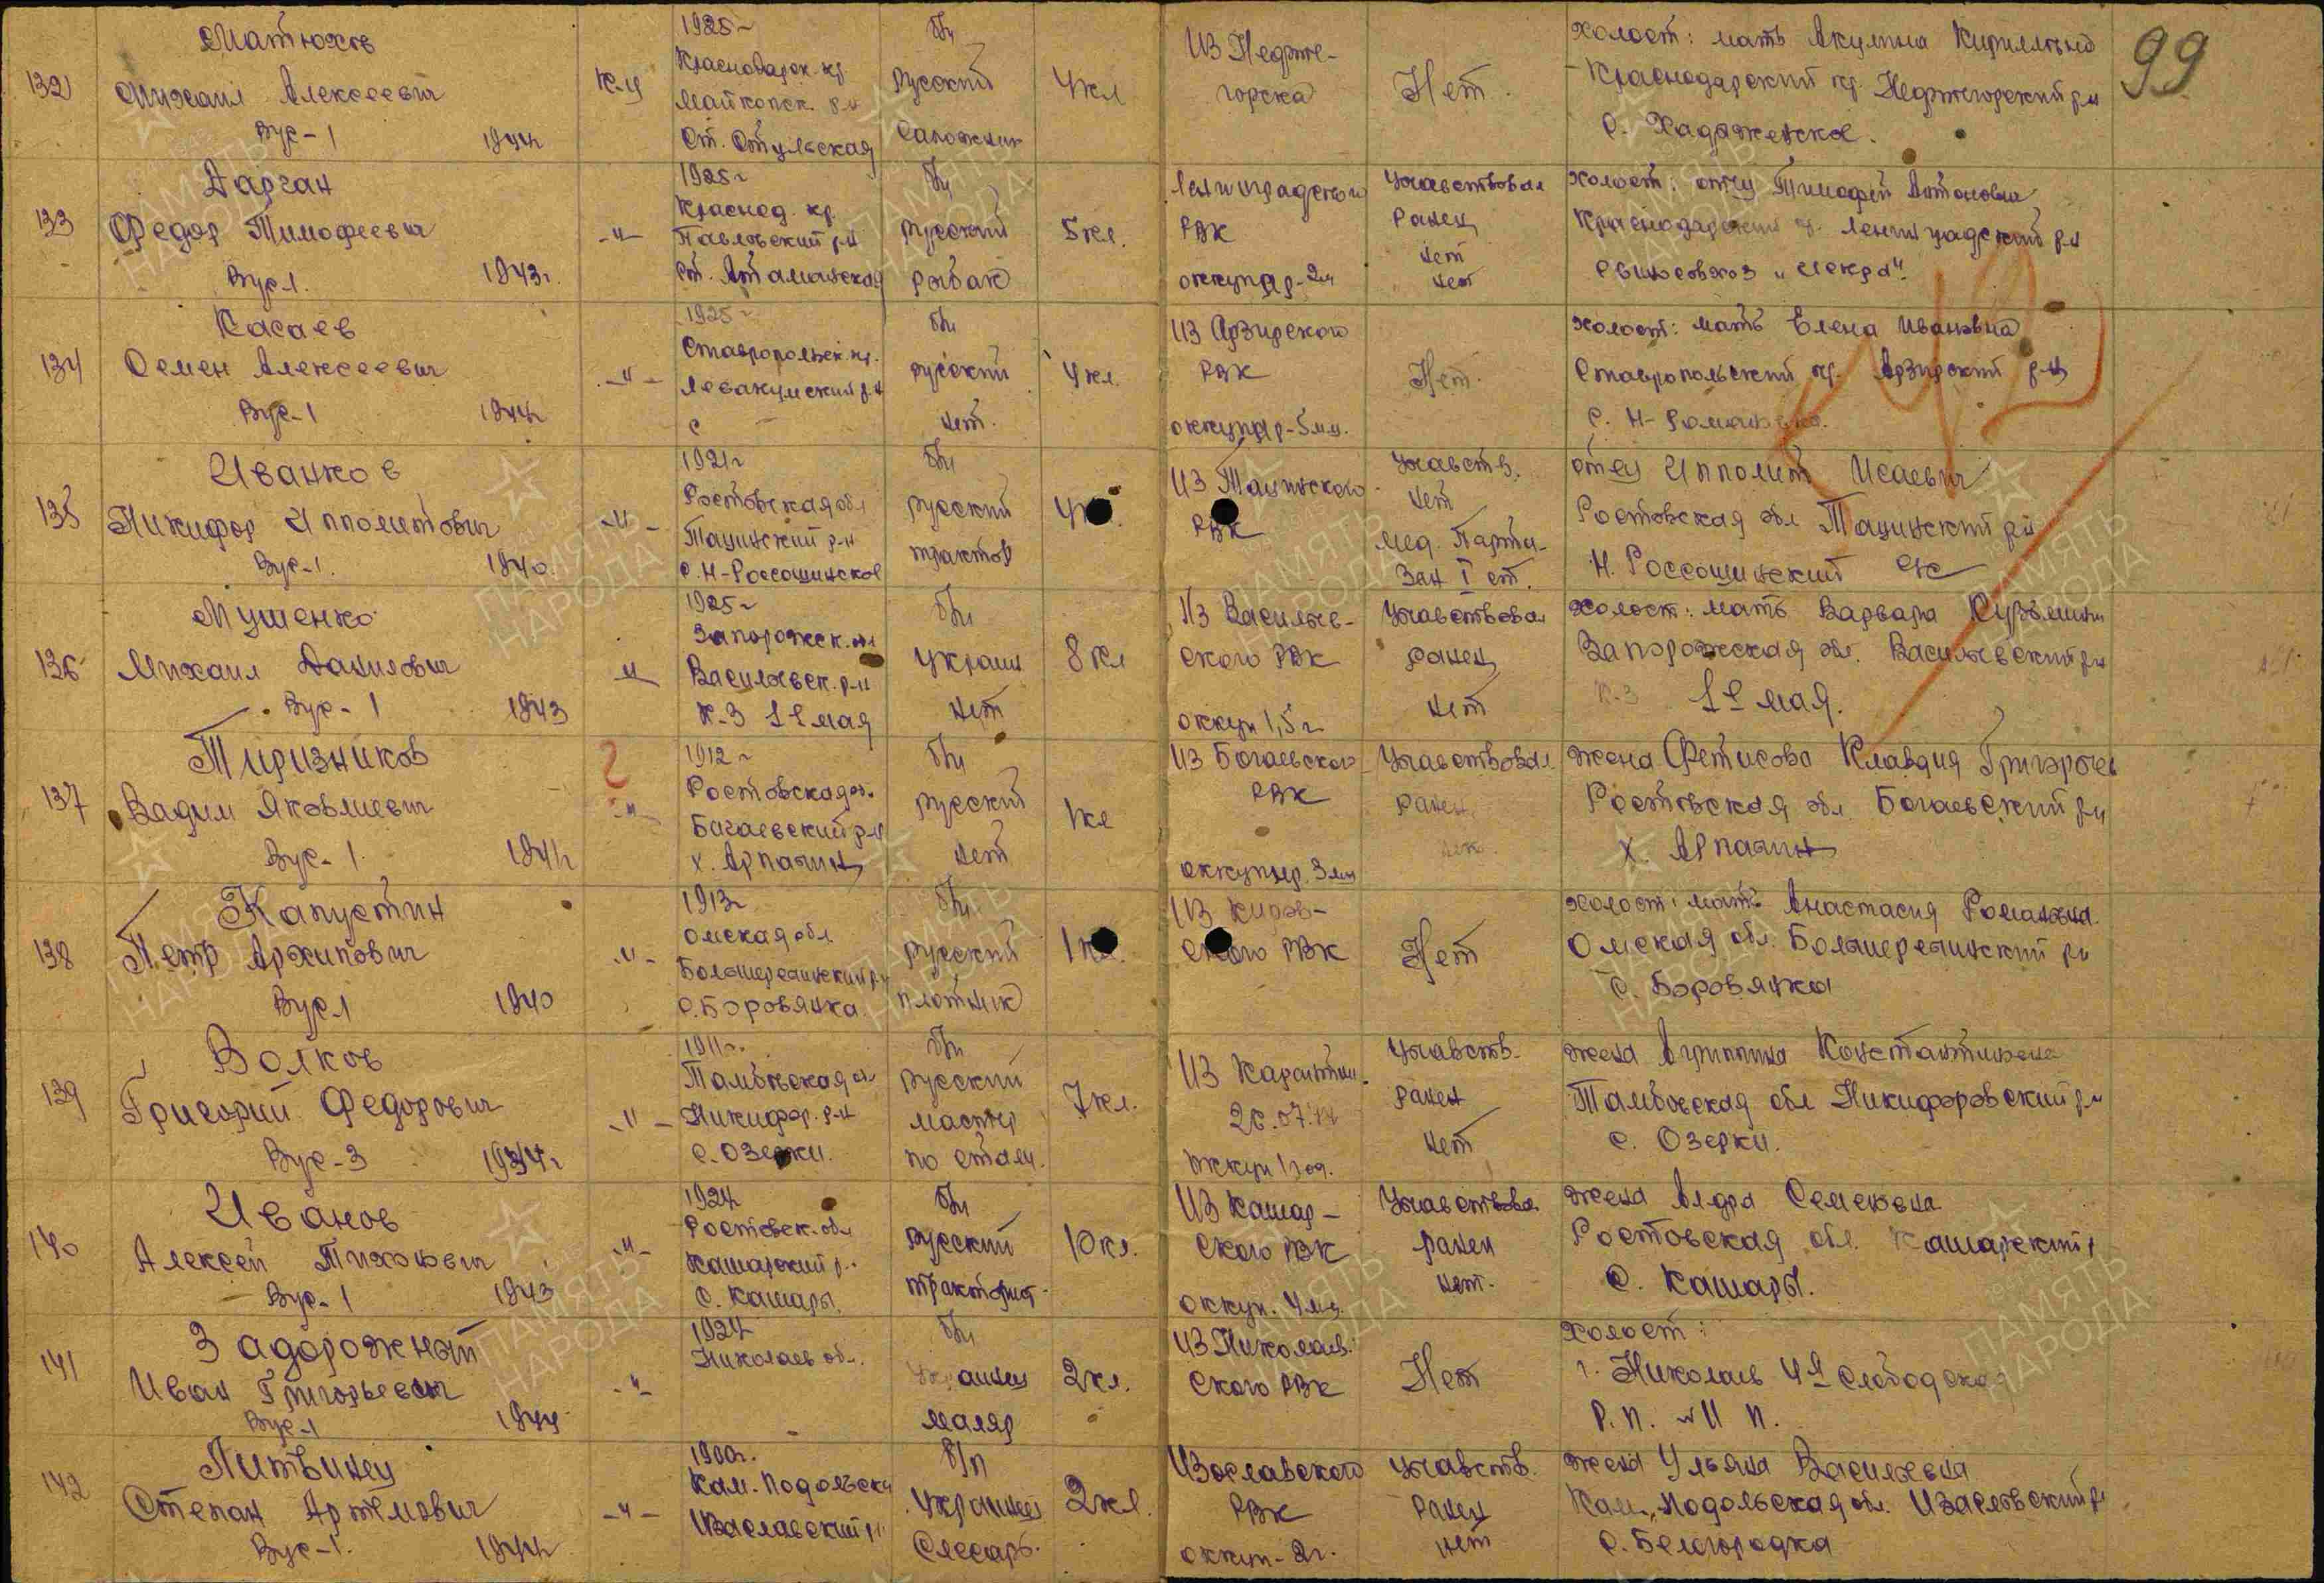 99
132
Матюхов
Михаил Алексеевич
Вус-1 1944
1925г
Краснодарск. кр.
Майкопск. р-н
б/п
русский
сапожник
4кл
из Нефте-
горска
Нет.
холост: мать Акулина Кирилловна
Краснодарский кр. Нефтегорский р-н
с. Хадыженское.
133
Дарган
Федор Тимофеевич
Вус 1. 1943г.
-"-
1925г
Краснод. кр.
Павловский р-н
ст. Атаманская
б/п
русский
рыбак
5кл.
Ленинградского
РВК
оккупир-2м
Участвовал
ранен
нет
нет
холост: отец Тимофей Антонович
Краснодарский кр. Ленинградский р-н
свиносовхоз „Искра".
134
Касаев
Семен Алексеевич
Вус-1 1944г
-"-
1925г
Ставропольск. кр.
Левакумский р-н
с
б/п
русский
нет.
4кл.
из Арзгирского
РВК
оккупир-5мц.
Нет.
холост: мать Елена Ивановна
Ставропольский кр. Арзгирский р-н
с. Н-Романовка.
135
Иванков
Никифор Ипполитович
Вус-1. 1940
-"-
1921г
Ростовская обл
Тацинский р-н
с. Н-Россошинское
б/п
русский
трактор
из Тацинского
РВК
Участв.
нет
мед. Парти-
зан I ст.
отец Ипполит Исаевич
Ростовская обл Тацинский р-н
Н. Россошинский с/с
136
Мушенко
Михаил Данилович
Вус-1 1943
-"-
1925г
Запорожск. обл
Васильевск. р-н
к-з 1е мая
б/п
украин
нет
8кл
Из Василье-
ского РВК
оккуп 1,5г
Участвовал
ранен
нет
холост: мать Варвара Кузьмин
Запорожская обл. Васильевский р-н
к-з 1е мая.
137
Тиризников
Вадим Яковлиевич
Вус-1 1941г
-"-
1912г
Ростовская об.
Багаевский р-н
х. Арпачин
б/п
русский
нет
1кл
из Богаевского
РВК
оккупир. 3мц
Участвовал
ранен.
жена Фетисова Клавдия Григорьев
Ростовская обл. Богаевский р-н
х. Арпачин
138
Капустин
Петр Архипович
Вус1 1940
-"-
1913г
Омская обл
Большереченский р-н
с. Боровянка
б/п
русский
плотник
из Киров-
ского РВК
Нет
холост: мать Анастасия Романовна.
Омская обл. Большереченский р-н
с. Боровянка
139
Волков
Григорий Федорович
Вус-3
-"-
1911г.
Тамбовская об
Никифор. р-н
с. Озерки.
б/п
русский
мастер
по стали.
7кл.
из Карантин.
26.07.44
оккуп 1 год.
Участв.
ранен
нет
жена Агрипина Константиновна
Тамбовская обл Никифоровский р-н
с. Озерки.
140
Иванов
Алексей Тихонович
Вус-1 1943
-"-
1924
Ростовск. обл
Кашарский р.
с. Кашары.
б/п
русский
тракторист.
10кл.
из Кашар-
ского РВК
оккуп. 4мц.
Участвовал
ранен
нет.
жена Алдра Семеновна
Ростовская обл. Кашарский
с. Кашары.
141
Задорожный
Иван Григорьевич
Вус-1 1944
-"-
1924
Николаев об.
б/п
украинец
маляр
2кл.
из Николаев.
ского РВК
Нет
холост:
г. Николаев 4я Слободская
142
Литвинец
Степан Артемович
Вус-1. 1944
-"-
1900г.
Кам. Подольска
Изяславский р-н
б/п
украинец
Слесарь.
2кл.
Изяславского
РВК
оккуп-2г.
Участв.
ранен
нет
жена Ульяна Васильевна
Кам. Подольская обл. Изяславский р
с. Белогородка
ПАМЯТЬ
НАРОДА